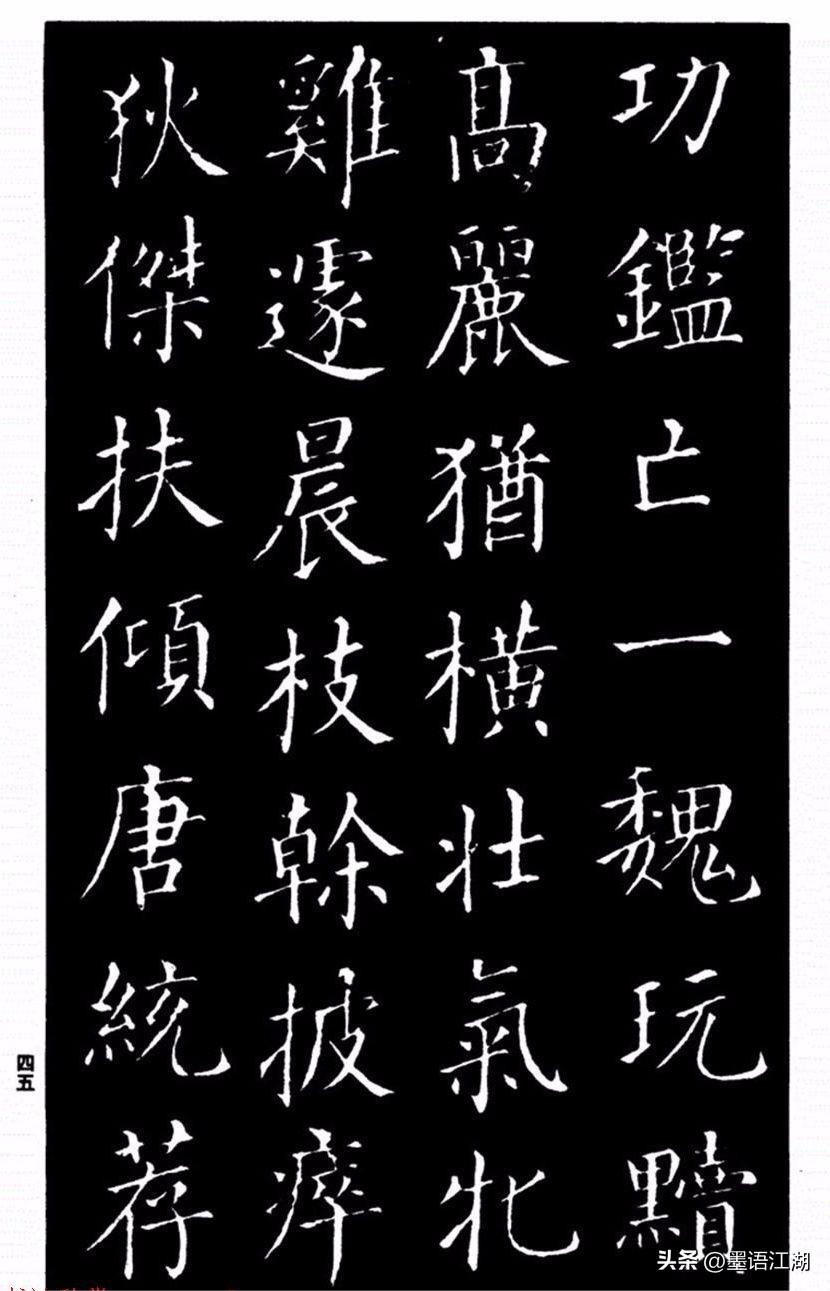 功鑑亡一魏玩黷
髙麗猶橫壯氣牝
雞遽晨枝榦披瘁
狄傑扶傾唐統荐
四五
头条 @墨语江湖